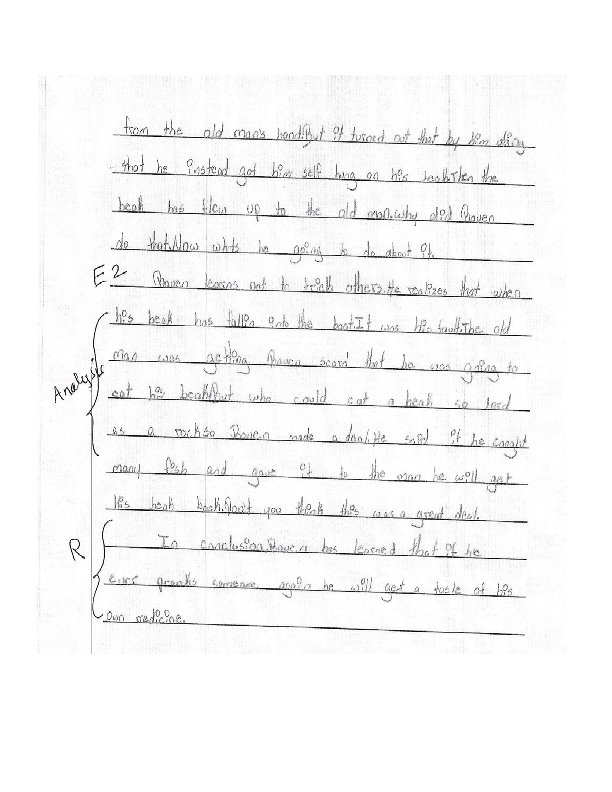 from the old man's hand.But it turned not that by him diing
that he instend got him self hung on his beak.Then the
beak has flew up to the old man.why did Raven
do that.Now whts he going to do about it.
E2
Raven learns not to trick others.He realizes that when
his beak has fallin into the boat.It was his fault.The old
Analysis
man was getting Raven scard that he was going to
eat his beak.But who could eat a beak so hard
as a rock.So Raven made a deal.He said if he caught
many fish and gave it to the man he will get
his beak back.Don't you think this was a great deal.
R
In conclusion.Raven has learned that if he
ever pranks someone again he will get a taste of his
own medicine.